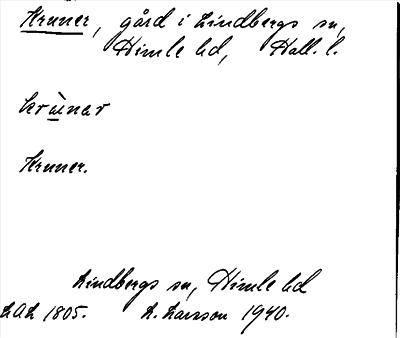 Kruner, gård i Lindbergs sn,
Himle hd, Hall. l.
krùnar
Kruner.
Lindbergs sn, Himle hd
LAL 1805. L. Larsson 1940.